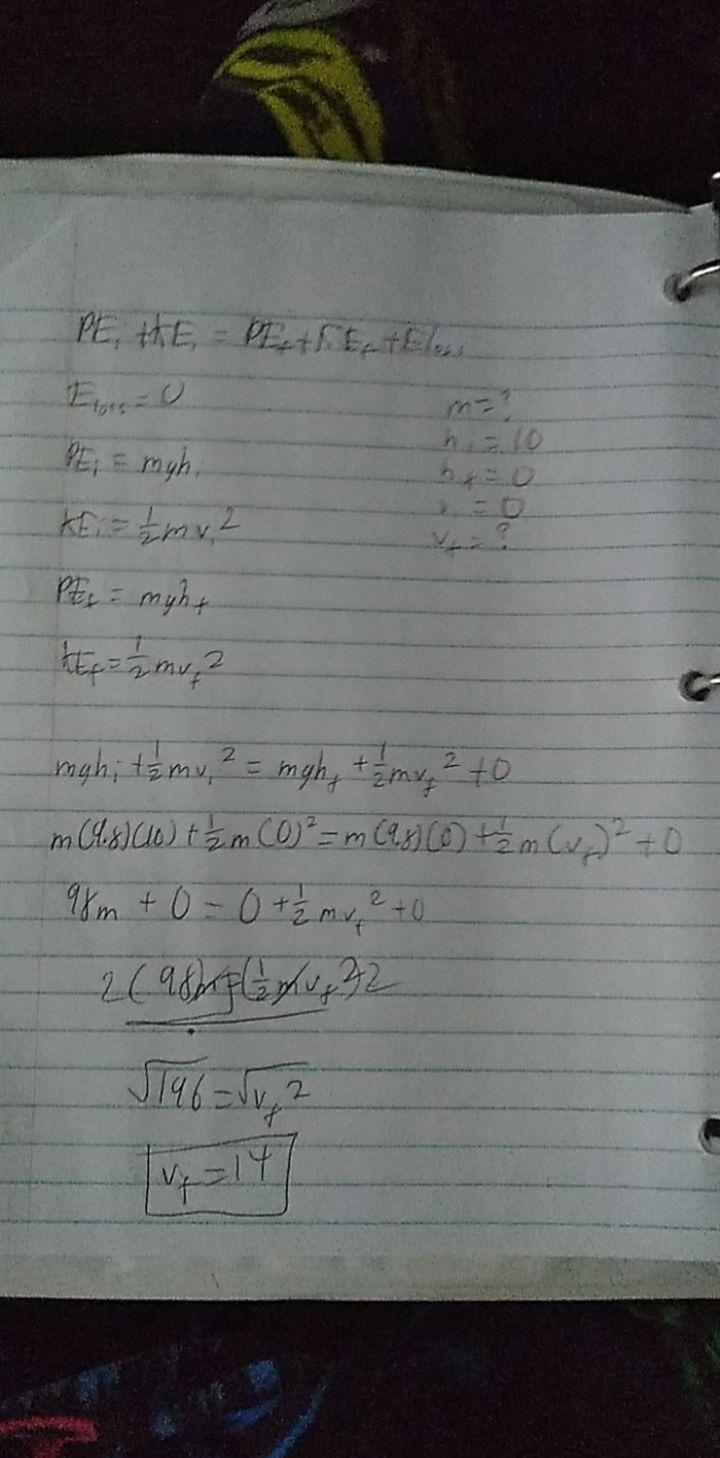 PEᵢ + KEᵢ = PE_f + KE_f + E loss
E loss = 0
m = ?
hᵢ = 10
PEᵢ = mghᵢ
h_f = 0
vᵢ = 0
KEᵢ = 1/2 mvᵢ²
v_f = ?
PE_f = mgh_f
KE_f = 1/2 mv_f²
mghᵢ + 1/2 mvᵢ² = mgh_f + 1/2 mv_f² + 0
m(9.8)(10) + 1/2 m(0)² = m(9.8)(0) + 1/2 m(v_f)² + 0
98m + 0 = 0 + 1/2 mv_f² + 0
2(98)m = (1/2 mv_f²)2
√196 = √v_f²
v_f = 14